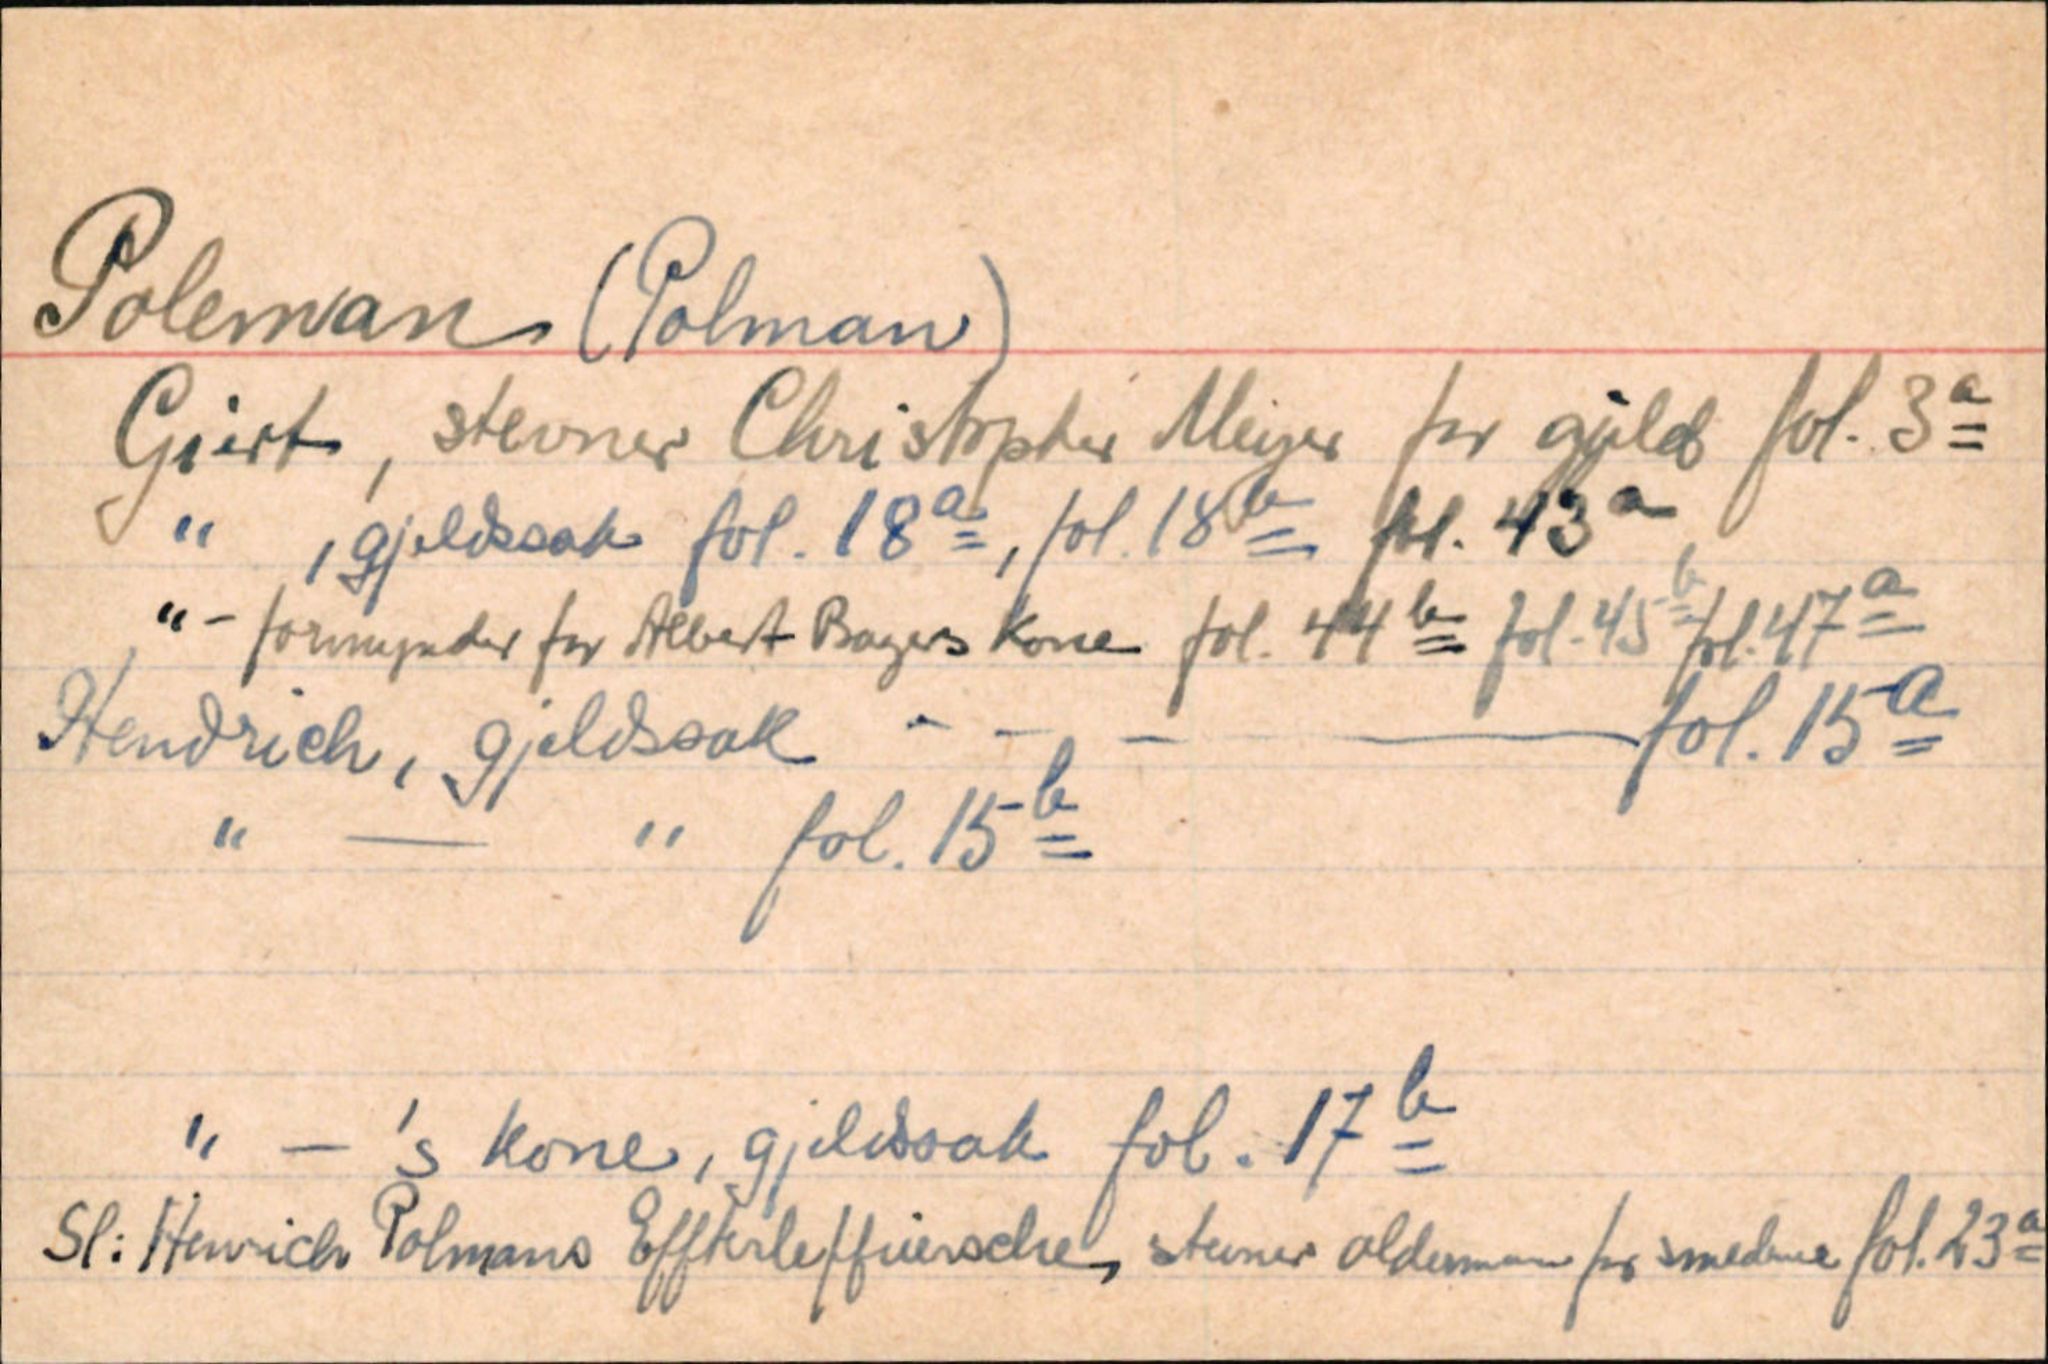 Poleman (Polman)
Giert, stevner Christopher Meijer for gjeld fol. 3a
" , gjeldssak fol. 18a, fol. 18b fol. 43a
" – formynder for Albert Bagers kone fol. 44b fol. 45b fol. 47a
Hendrich, gjeldssak - - - — fol. 15a
" — " fol. 15b
" – 's kone, gjeldssak fol. 17b
Sl: Henrich Polmans Effterleffuersche, stevner olderman for smedene fol. 23a